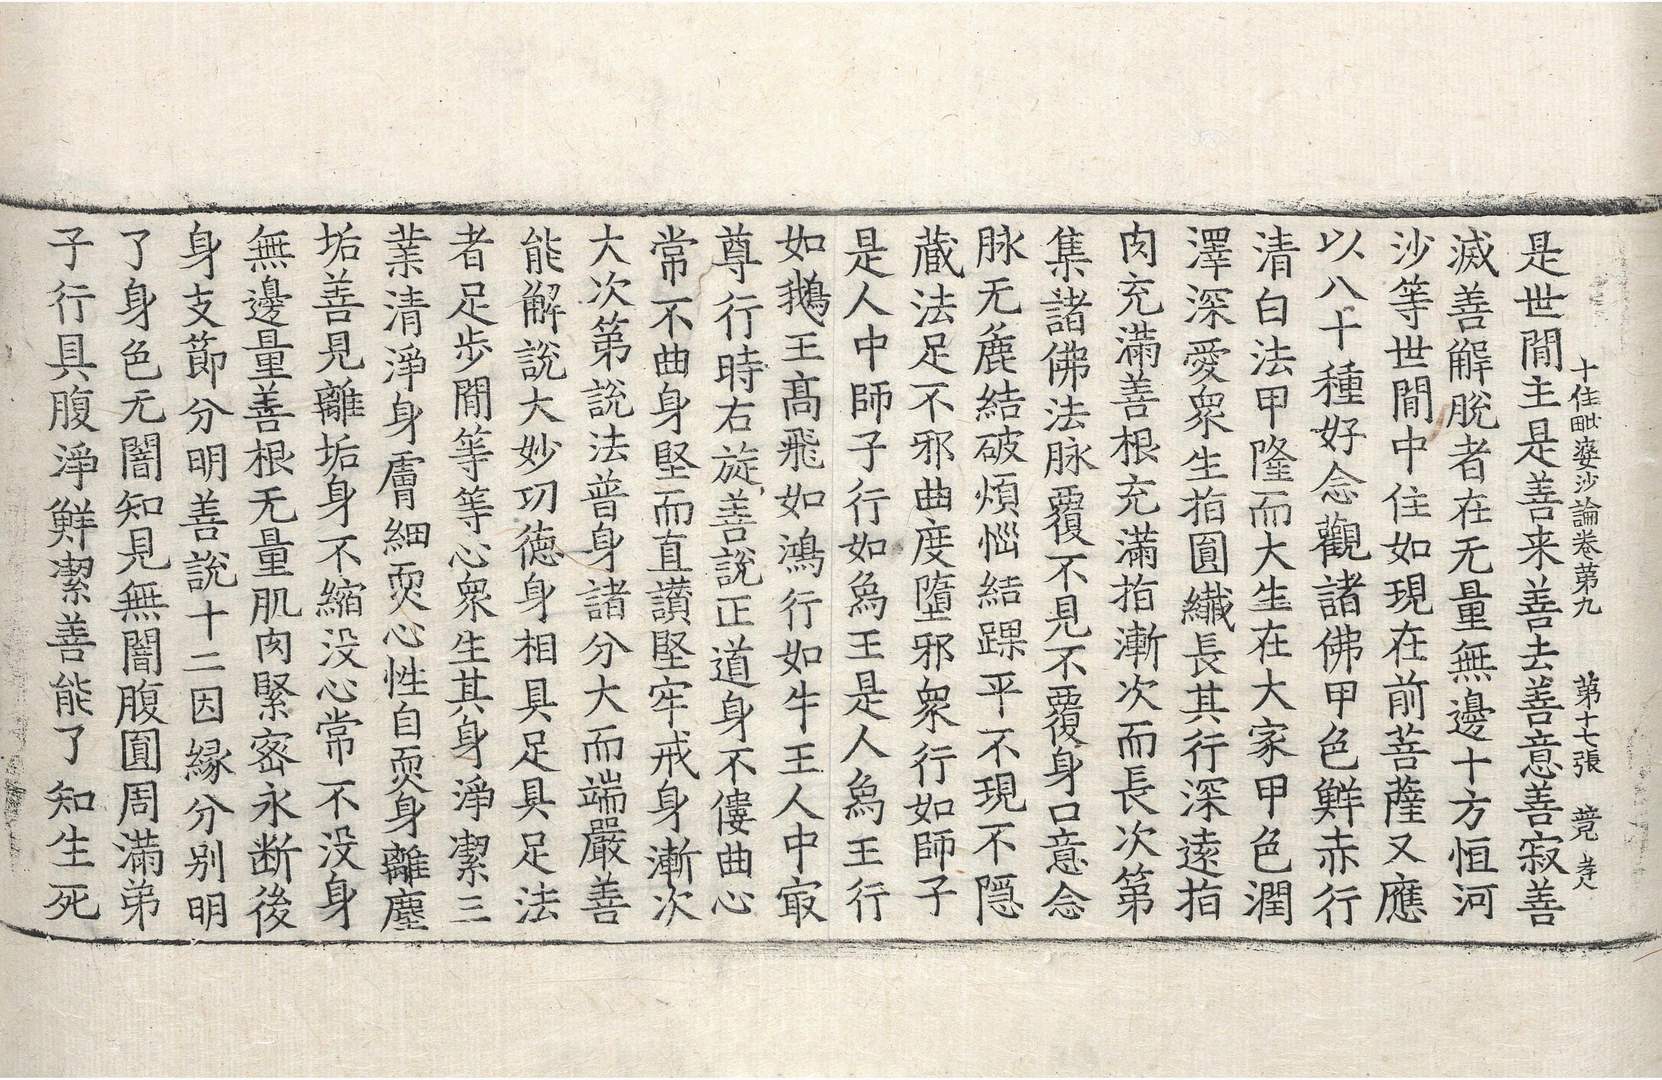 十住毗婆沙論卷第九　第十七張　竟
是世間主是善来善去善意善寂善
滅善解脫者在无量無邊十方恒河
沙等世間中住如現在前菩薩又應
以八十種好念觀諸佛甲色鮮赤行
清白法甲隆而大生在大家甲色潤
澤深愛衆生指圓纎長其行深遠指
肉充滿善根充滿指漸次而長次第
集諸佛法脉覆不見不覆身口意念
脉无麁結破煩惱結踝平不現不隱
蔵法足不邪曲度墮邪衆行如師子
是人中師子行如烏王是人烏王行
如鵝王髙飛如鴻行如牛王人中㝡
尊行時右旋善說正道身不僂曲心
常不曲身堅而直讃堅牢戒身漸次
大次第說法普身諸分大而端嚴善
能解說大妙㓛德身相具足具足法
者足步間等等心衆生其身淨潔三
業清淨身膚細耎心性自耎身離塵
垢善見離垢身不縮没心常不没身
無邊量善根无量肌肉緊密永断後
身支節分明善說十二因縁分别明
了身色无闇知見無闇腹圓周滿弟
子行具腹淨鮮潔善能了知生死